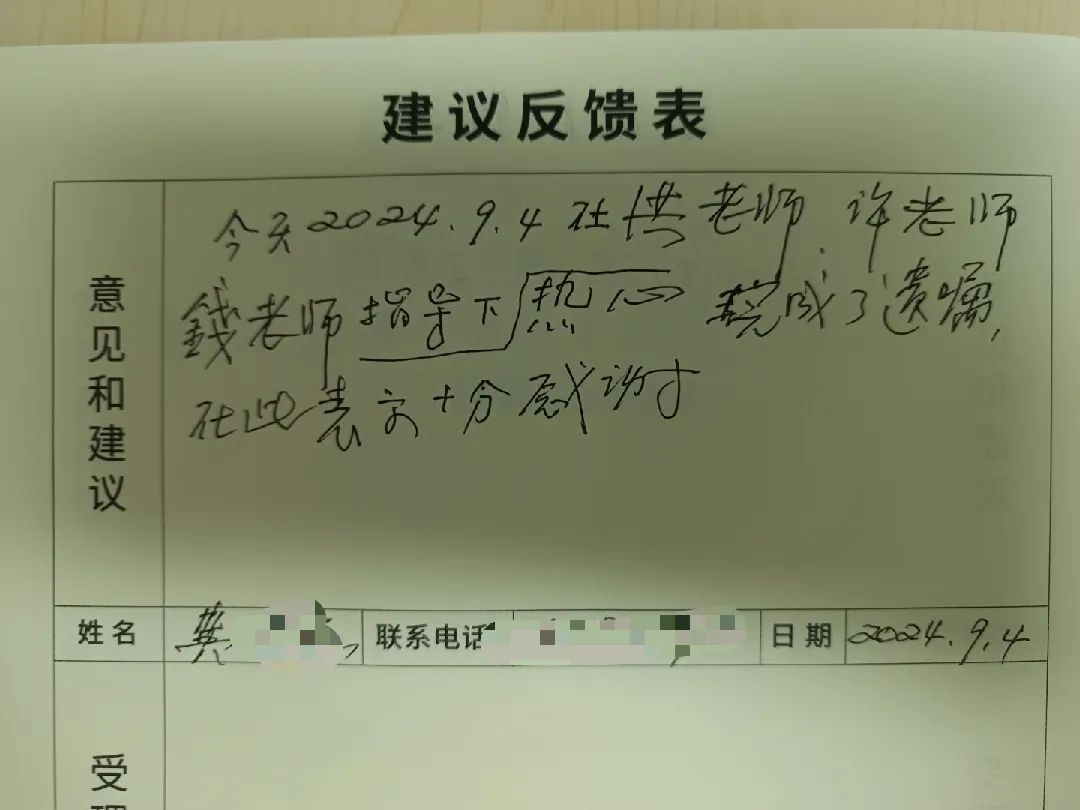 建议反馈表
意见和建议
今天2024.9.4在洪老师.许老师
錢老师指导下热心完成了遗嘱,
在此表示十分感谢
姓名
联系电话
日期 2024.9.4
受